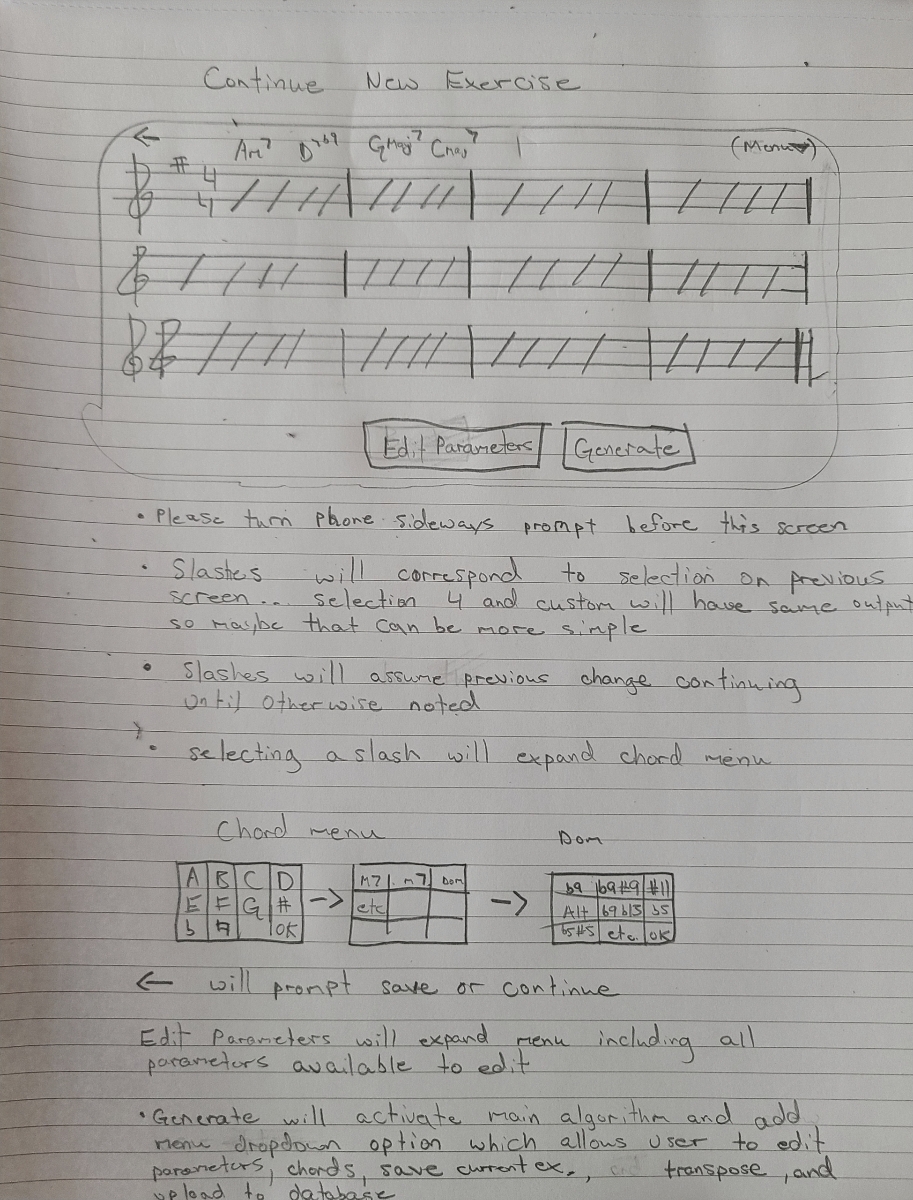 Continue New Exercise
← Am7 D7b9 GMaj7 CMaj7 (Menu▾)
# 4
4
Edit Parameters Generate
• Please turn phone sideways prompt before this screen
• Slashes will correspond to selection on previous
screen... selection 4 and custom will have same output
so maybe that can be more simple
• Slashes will assume previous change continuing
until otherwise noted
• selecting a slash will expand chord menu
Chord menu Dom
A B C D → M7 m7 Dom → b9 b9#9 #11
E F G # etc Alt b9b13 b5
b ♮ OK b5#5 etc. OK
← will prompt save or continue
Edit Parameters will expand menu including all
parameters available to edit
• Generate will activate main algorithm and add
menu dropdown option which allows user to edit
parameters, chords, save current ex, transpose, and
upload to database